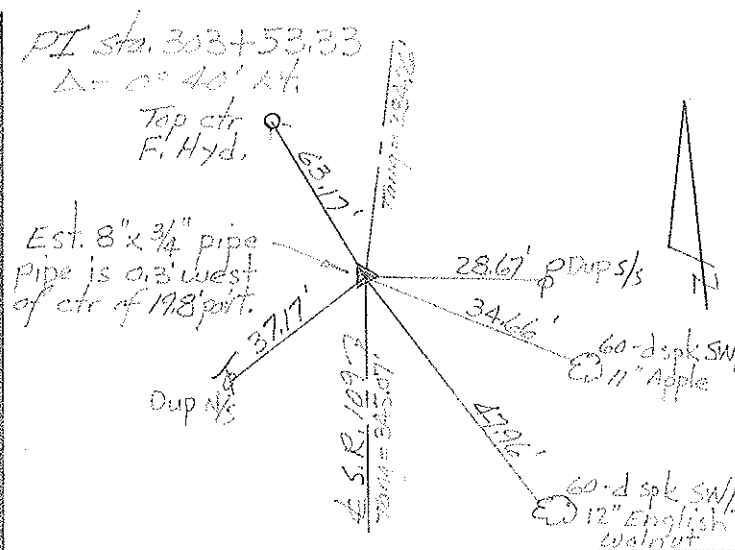 PI sta. 303+53.33
Δ= 0° 40' Lt.
Top ctr
F. Hyd.
63.17'
Tang = 284.25'
Est. 8" x 3/4" pipe
pipe is 0.3' west
of ctr of 19.8' port.
28.67'
Dup s/s
34.66'
60-d spk SW/
11" Apple
37.17'
Dup N/s
℄ S.R. 109
Tang = 345.07'
47.96'
60-d spk SW/
12" English
Walnut
N